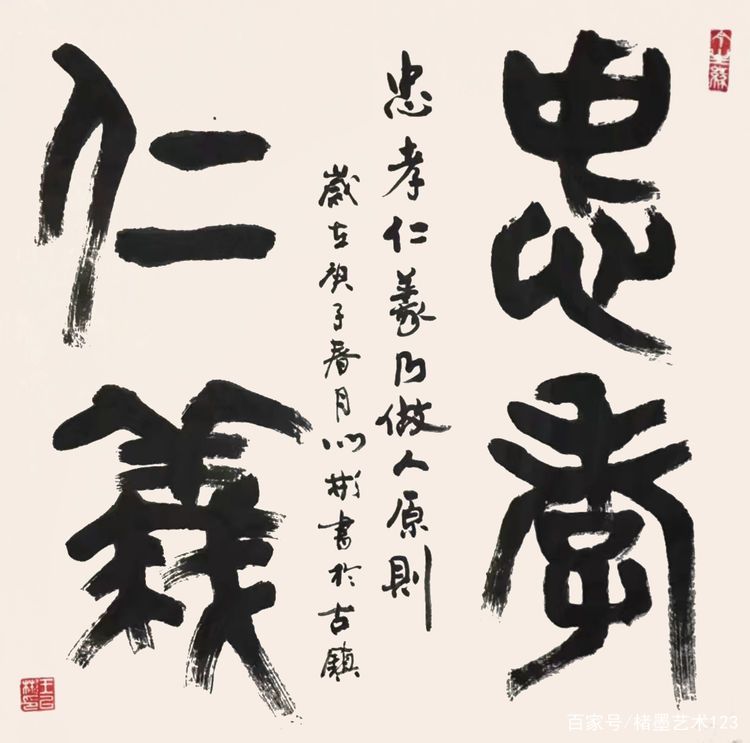 忠孝
忠孝仁義乃做人原則
歲在庚子春月以彬書於古鎮
仁義
百家号/楮墨艺术123